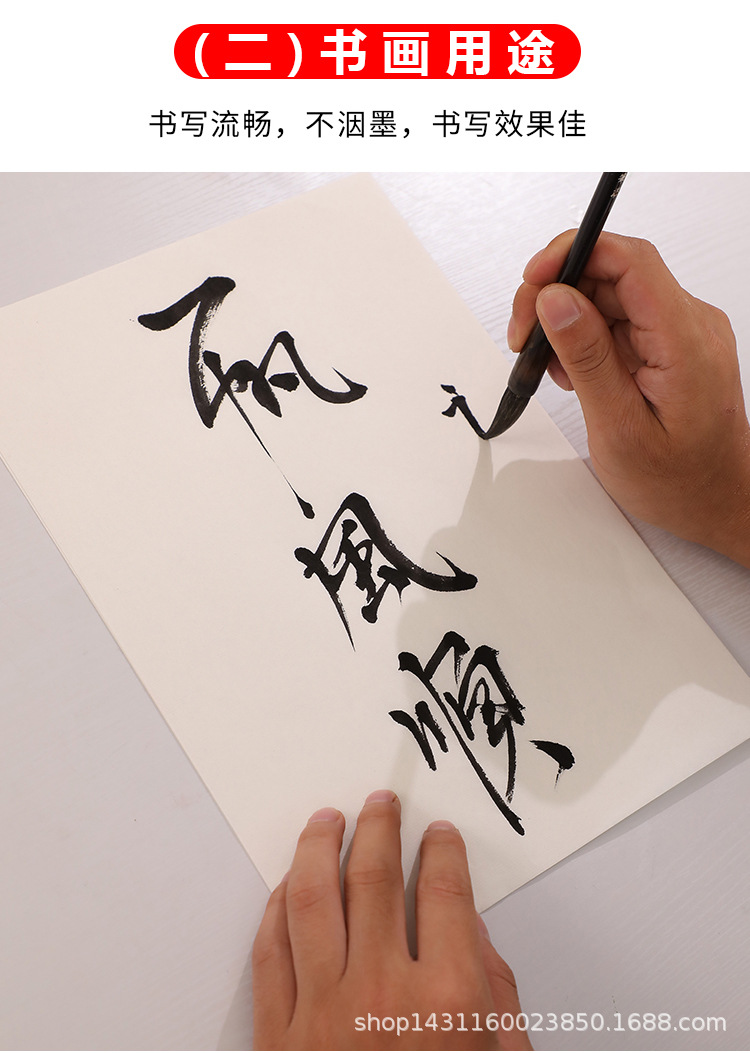 (二)书画用途
书写流畅，不洇墨，书写效果佳
一帆風順
shop1431160023850.1688.com